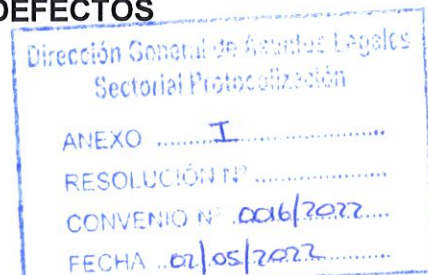 DEFECTOS
Dirección General de Asuntos Legales
Sectorial Protocolización
ANEXO ......I......
RESOLUCIÓN Nº ......
CONVENIO Nº .0016/2022....
FECHA ..02/05/2022......